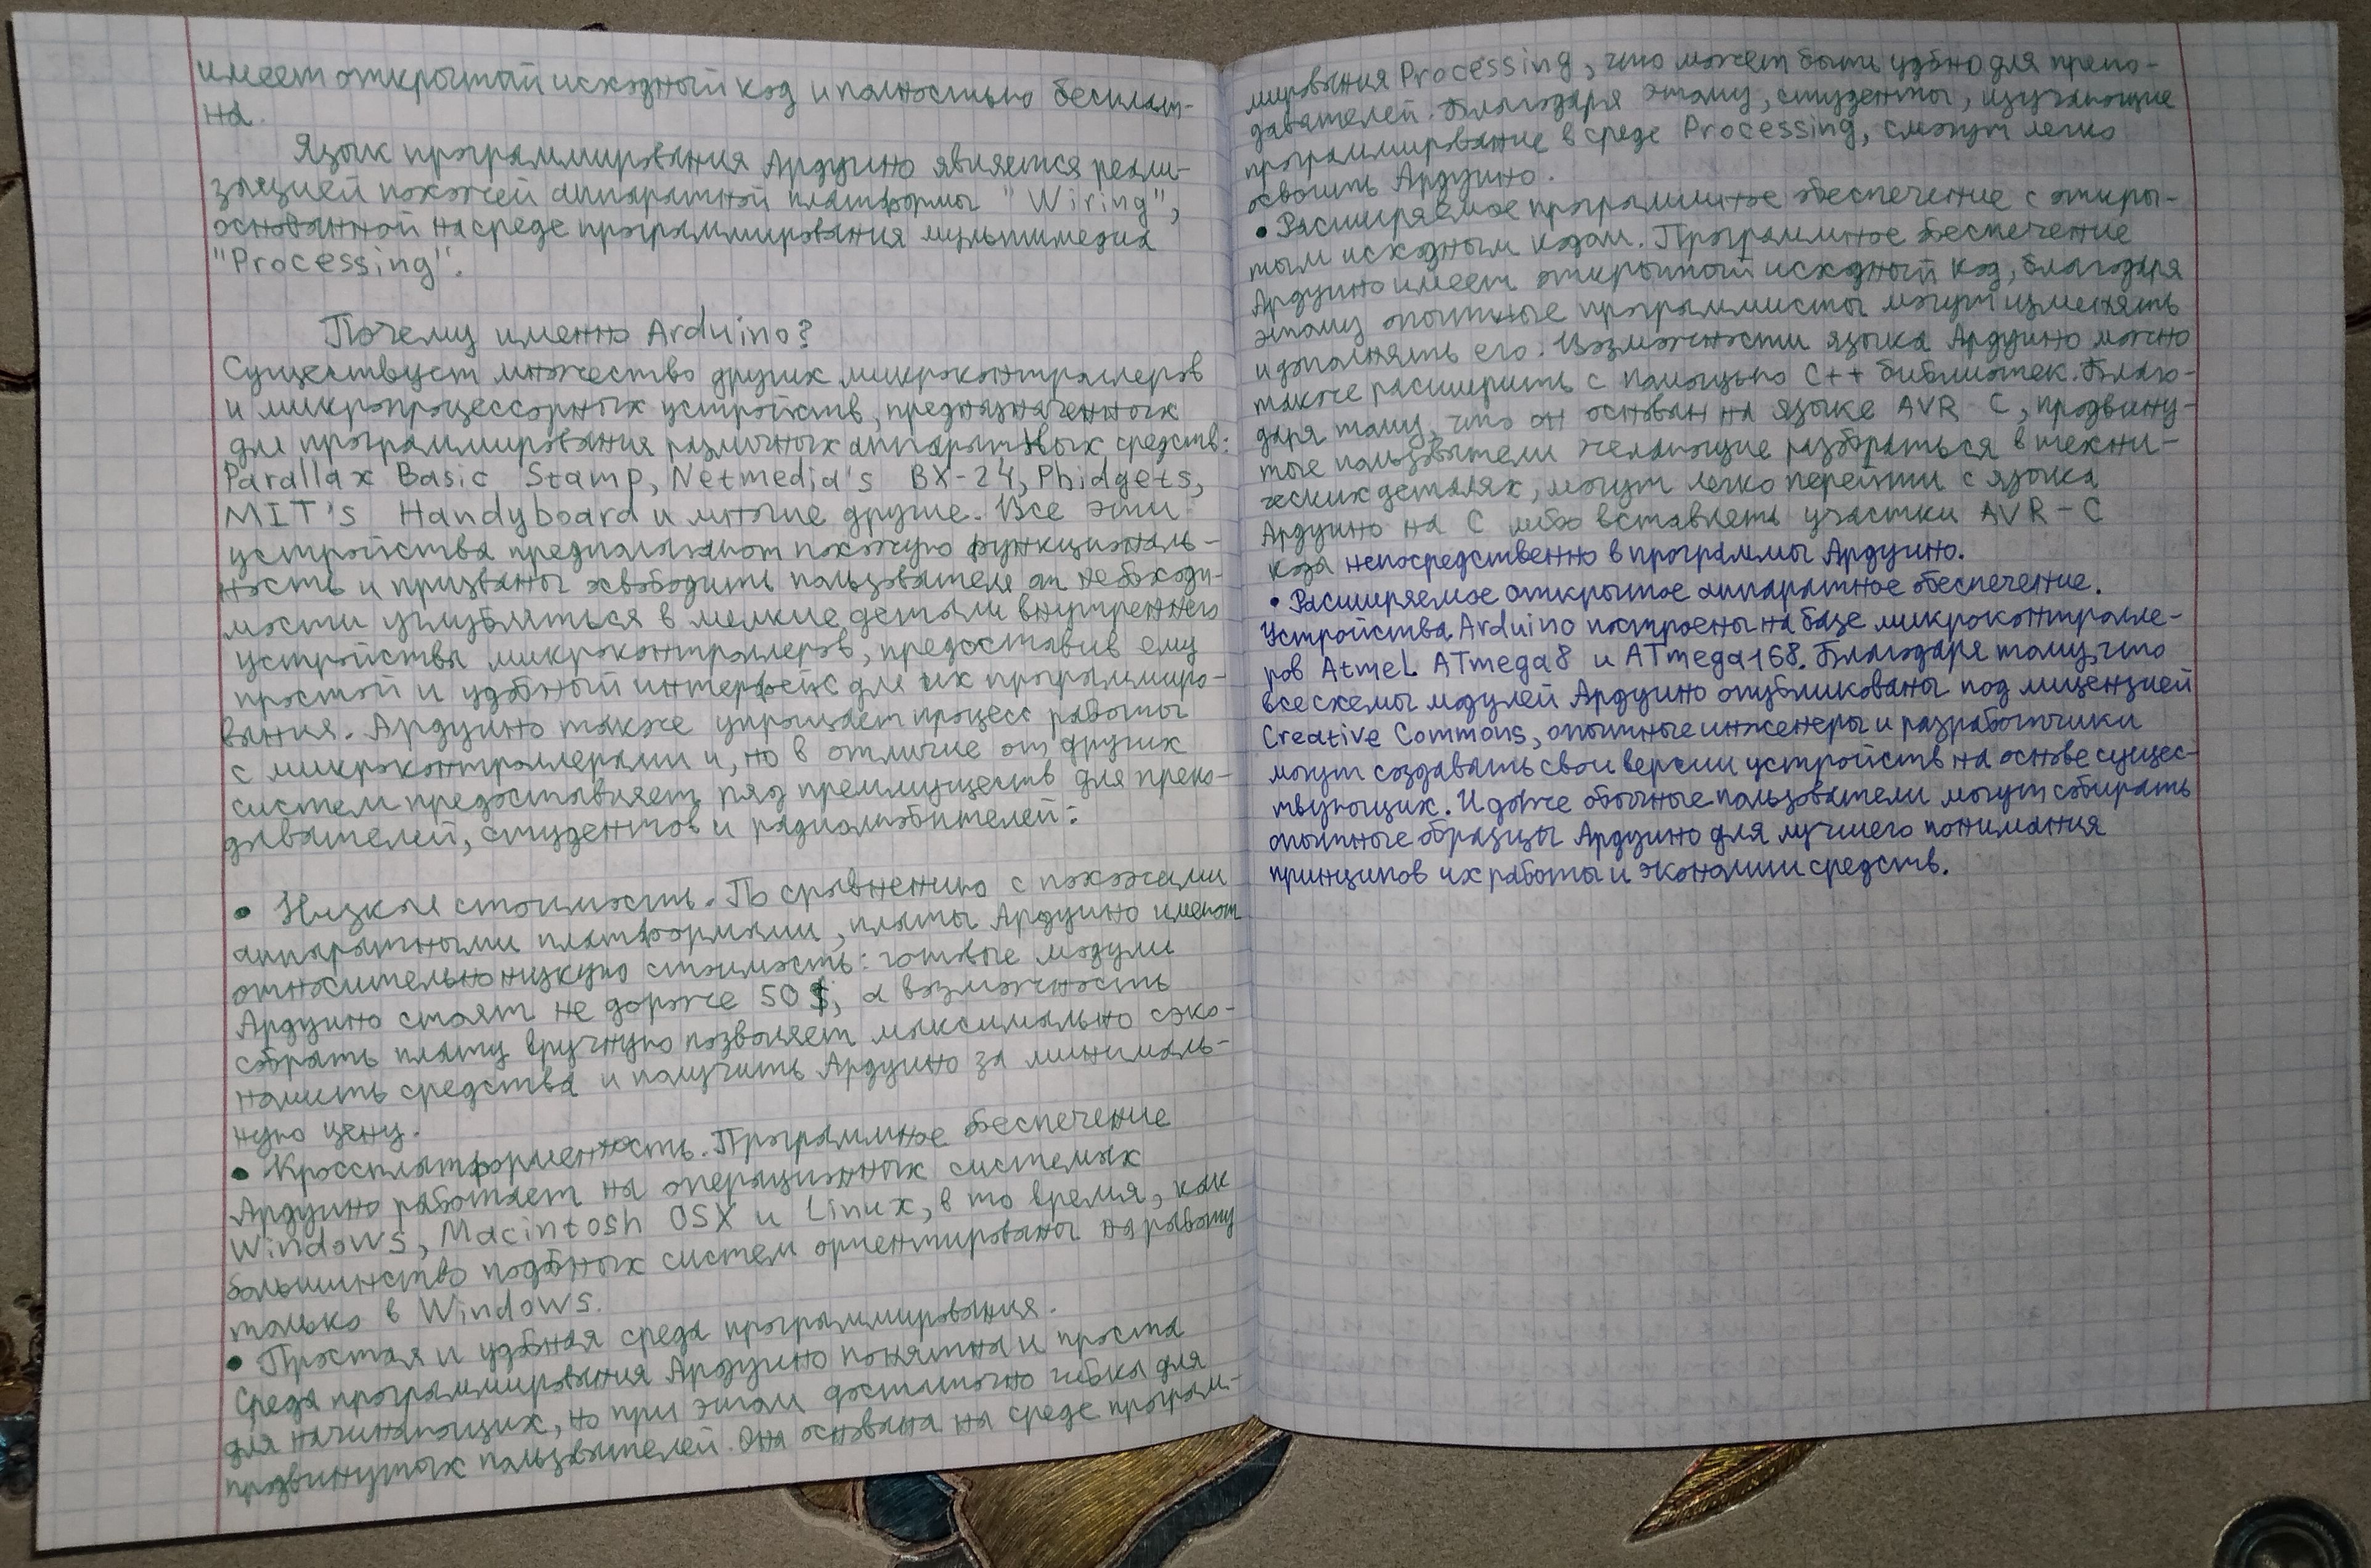 имеет открытый исходный код и полностью бесплат-
на.
Язык программирования Ардуино является реали-
зацией похожей аппаратной платформы "Wiring",
основанной на среде программирования мультимедиа
"Processing".
Почему именно Arduino?
Существует множество других микроконтроллеров
и микропроцессорных устройств, предназначенных
для программирования различных аппаратных средств:
Parallax Basic Stamp, Netmedia's BX-24, Phidgets,
MIT's Handyboard и многие другие. Все эти
устройства предполагают похожую функциональ-
ность и призваны освободить пользователя от необходи-
мости углубляться в мелкие детали внутреннего
устройства микроконтроллеров, предоставив ему
простой и удобный интерфейс для их программиро-
вания. Ардуино также упрощает процесс работы
с микроконтроллерами и, но в отличие от других
систем предоставляет ряд преимуществ для препо-
давателей, студентов и радиолюбителей:
• Низкая стоимость. По сравнению с похожими
аппаратными платформами, платы Ардуино имеют
относительно низкую стоимость: готовые модули
Ардуино стоят не дороже 50$, а возможность
собрать плату вручную позволяет максимально сэко-
номить средства и получить Ардуино за минималь-
ную цену.
• Кроссплатформенность. Программное обеспечение
Ардуино работает на операционных системах
Windows, Macintosh OSX и Linux, в то время, как
большинство подобных систем ориентированы на работу
только в Windows.
• Простая и удобная среда программирования.
Среда программирования Ардуино понятна и проста
для начинающих, но при этом достаточно гибка для
продвинутых пользователей. Она основана на среде програм-
мирования Processing, что может быть удобно для препо-
давателей. Благодаря этому, студенты, изучающие
программирование в среде Processing, смогут легко
освоить Ардуино.
• Расширяемое программное обеспечение с откры-
тым исходным кодом. Программное обеспечение
Ардуино имеет открытый исходный код, благодаря
этому опытные программисты могут изменять
и дополнять его. Возможности языка Ардуино можно
также расширить с помощью C++ библиотек. Благо-
даря тому, что он основан на языке AVR C, продвину-
тые пользователи желающие разобраться в техни-
ческих деталях, могут легко перейти с языка
Ардуино на C либо вставлять участки AVR-C
кода непосредственно в программы Ардуино.
• Расширяемое открытое аппаратное обеспечение.
Устройства Arduino построены на базе микроконтролле-
ров Atmel ATmega8 и ATmega168. Благодаря тому, что
все схемы модулей Ардуино опубликованы под лицензией
Creative Commons, опытные инженеры и разработчики
могут создавать свои версии устройств на основе сущес-
твующих. И даже обычные пользователи могут собирать
опытные образцы Ардуино для лучшего понимания
принципов их работы и экономии средств.